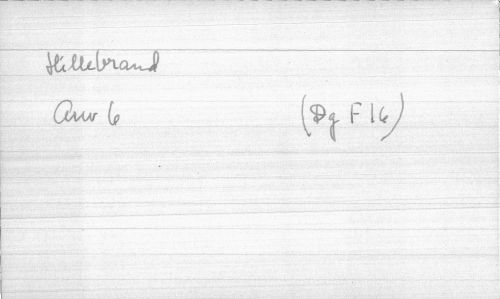 Hillebrand
Anv 6 (Dg F 16)